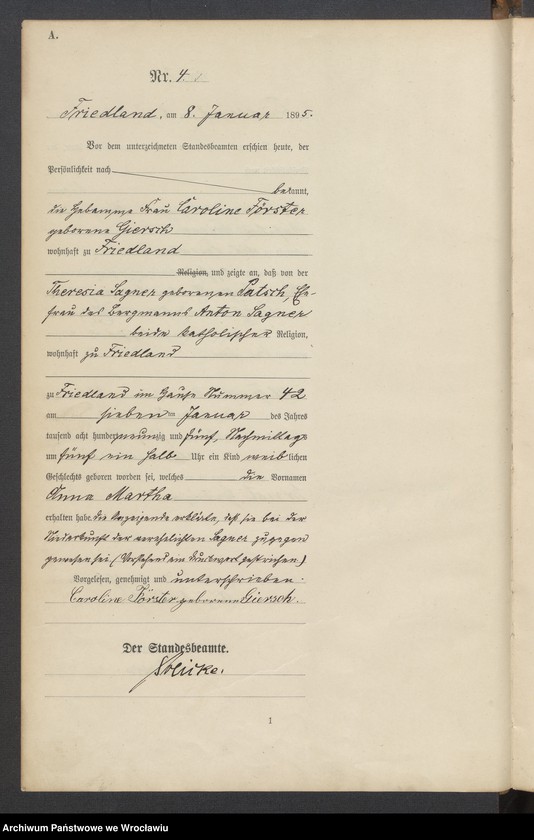 A.
Nr. 4.
Friedland, am 8. Januar 1895.
Vor dem unterzeichneten Standesbeamten erschien heute, der
Persönlichkeit nach
bekannt,
die Hebamme Frau Caroline Förster
geborene Giersch
wohnhaft zu Friedland
Religion, und zeigte an, daß von der
Theresia Sagner geborenen Patsch, Ehe-
frau des Bergmanns Anton Sagner
beide katholischer Religion,
wohnhaft zu Friedland
zu Friedland im Hause Nummer 42
am sieben ten Januar des Jahres
tausend acht hundert neunzig und fünf, Nachmittags
um fünf ein halb Uhr ein Kind weiblichen
Geschlechts geboren worden sei, welches die Vornamen
Anna Martha
erhalten habe. Die Anzeigende erklärte, daß sie bei der
Niederkunft der verehelichten Sagner zugegen
gewesen sei. (Vorstehend ein Druckwort gestrichen)
Vorgelesen, genehmigt und unterschrieben.
Caroline Förster geborene Giersch.
Der Standesbeamte.
1
Archiwum Państwowe we Wrocławiu